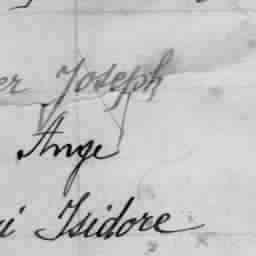 er Joseph
Ange
i Isidore